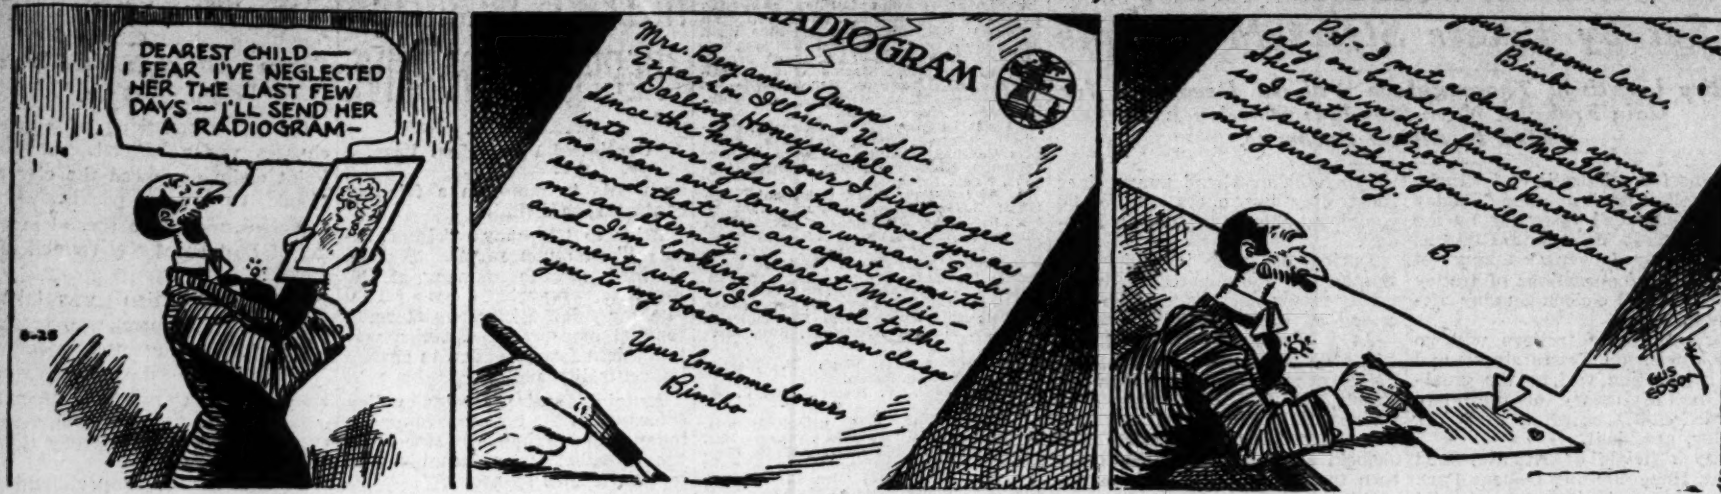 DEAREST CHILD—
I FEAR I'VE NEGLECTED
HER THE LAST FEW
DAYS— I'LL SEND HER
A RADIOGRAM—
8-25
RADIOGRAM
Mrs. Benjamin Gump
U.S.A.
Darling Honeysuckle—
Since the happy hour I first gazed
into your eyes, I have loved you as
no man ever loved a woman. Each
second that we are apart seems to
me an eternity, dearest Millie—
and I'm looking forward to the
moment when I can again clasp
you to my bosom.
Your lonesome lover,
Bimbo
your lonesome lover,
Bimbo
P.S.— I met a charming young
lady on board named
She was in dire financial straits
so I lent her $2,000— I know,
my sweet, that you will applaud
my generosity.
B.
GUS
EDSON